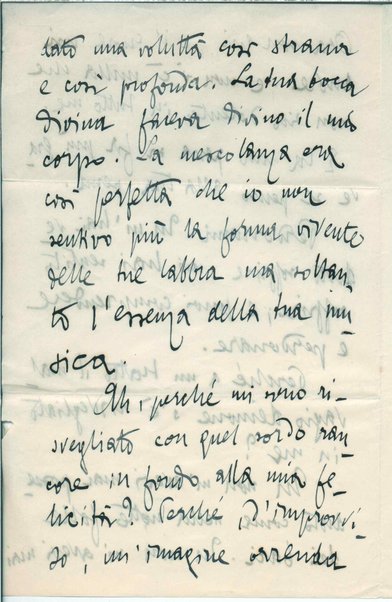 dato una voluttà così strana
e così profonda. La tua bocca
divina faceva divino il mio
corpo. La mescolanza era
così perfetta che io non
sentivo più la forma vivente
delle tue labbra ma soltan-
to l'essenza della tua mu-
sica.
Ah! perché mi sono ri-
svegliato con quel sordo ran-
core in fondo alla mia fe-
licità? Perché, d'improvvi-
so, un'imagine orrenda